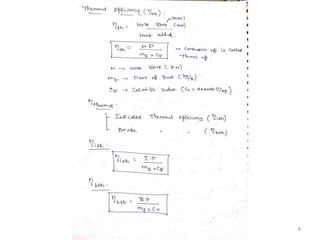 Thermal Efficiency (ηth) :
ηth = Work Done (kW)
Heat added.
ηth = W.D / mf × CV
→ Combustion eff is called
thermal eff.
W → Work Done (kW)
mf → Mass of fuel (kg/s)
CV → Calorific Value
ηthermal :
Indicated Thermal efficiency (ηith)
Brake " " (ηbth)
ηith :
ηith = I.P / mf × CV
ηbth :
ηbth = B.P / mf × CV